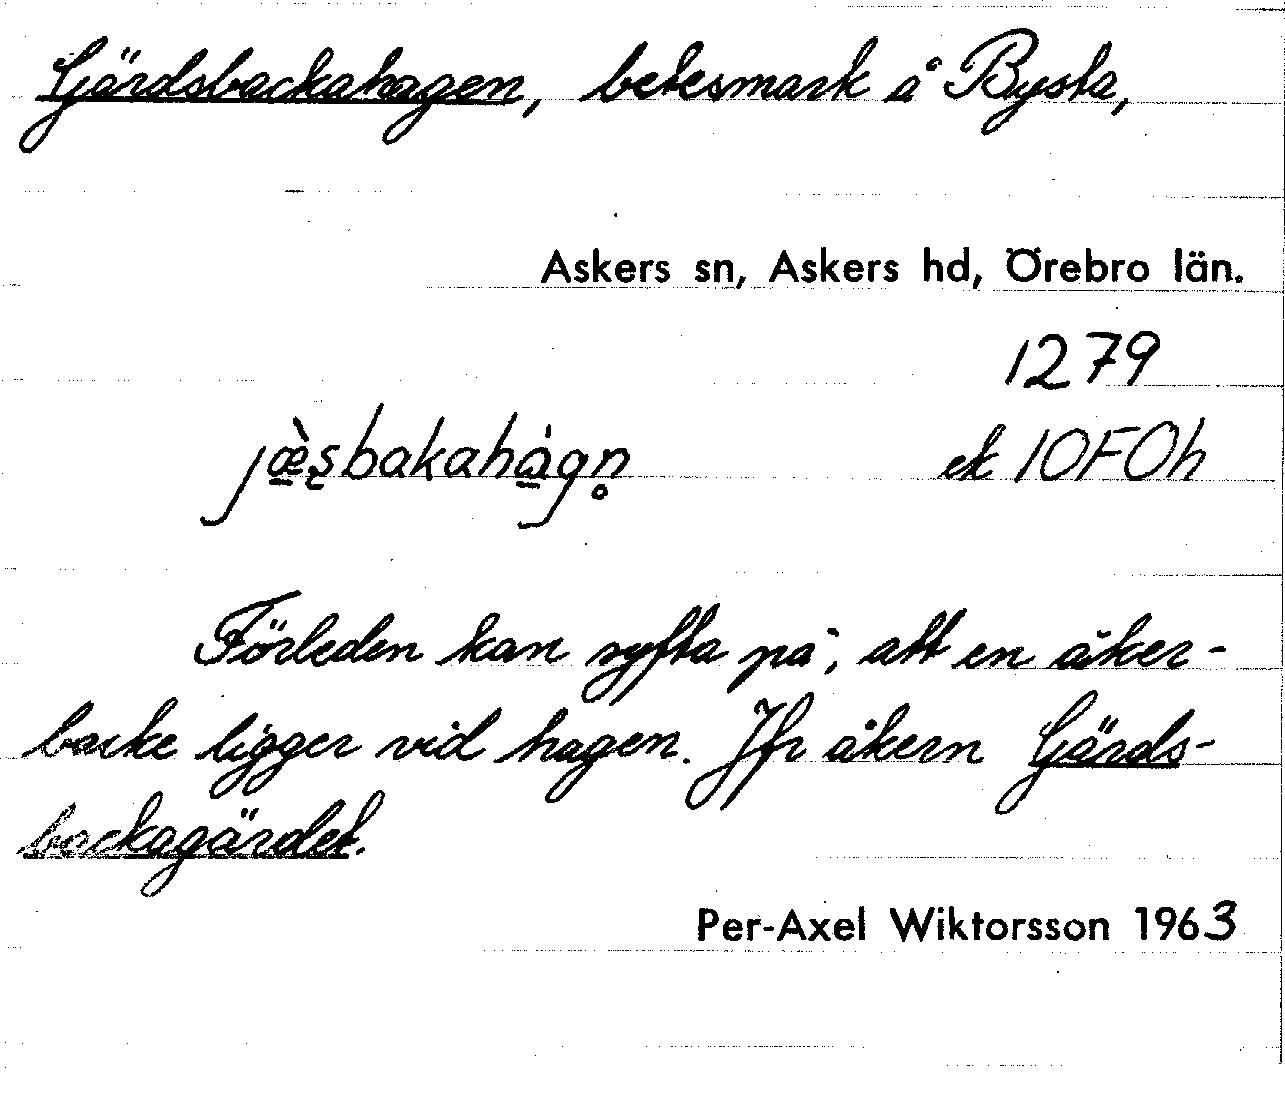 Gärdsbackahagen, betesmark å Bysta,
Askers sn, Askers hd, Örebro län.
1279
jæ̀ʂbakahágn̥ ek 10F0h
Förleden kan syfta på, att en åker-
backe ligger vid hagen. Jfr åkern Gärds-
backagärdet.
Per-Axel Wiktorsson 1963